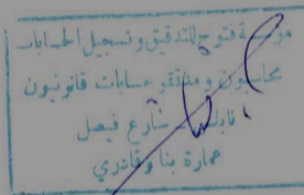 مؤسسة فتوح للتدقيق وتسجيل الحسابات
محاسبون ومدققو حسابات قانونيون
نابلس شارع فيصل
عمارة بنا وقادري